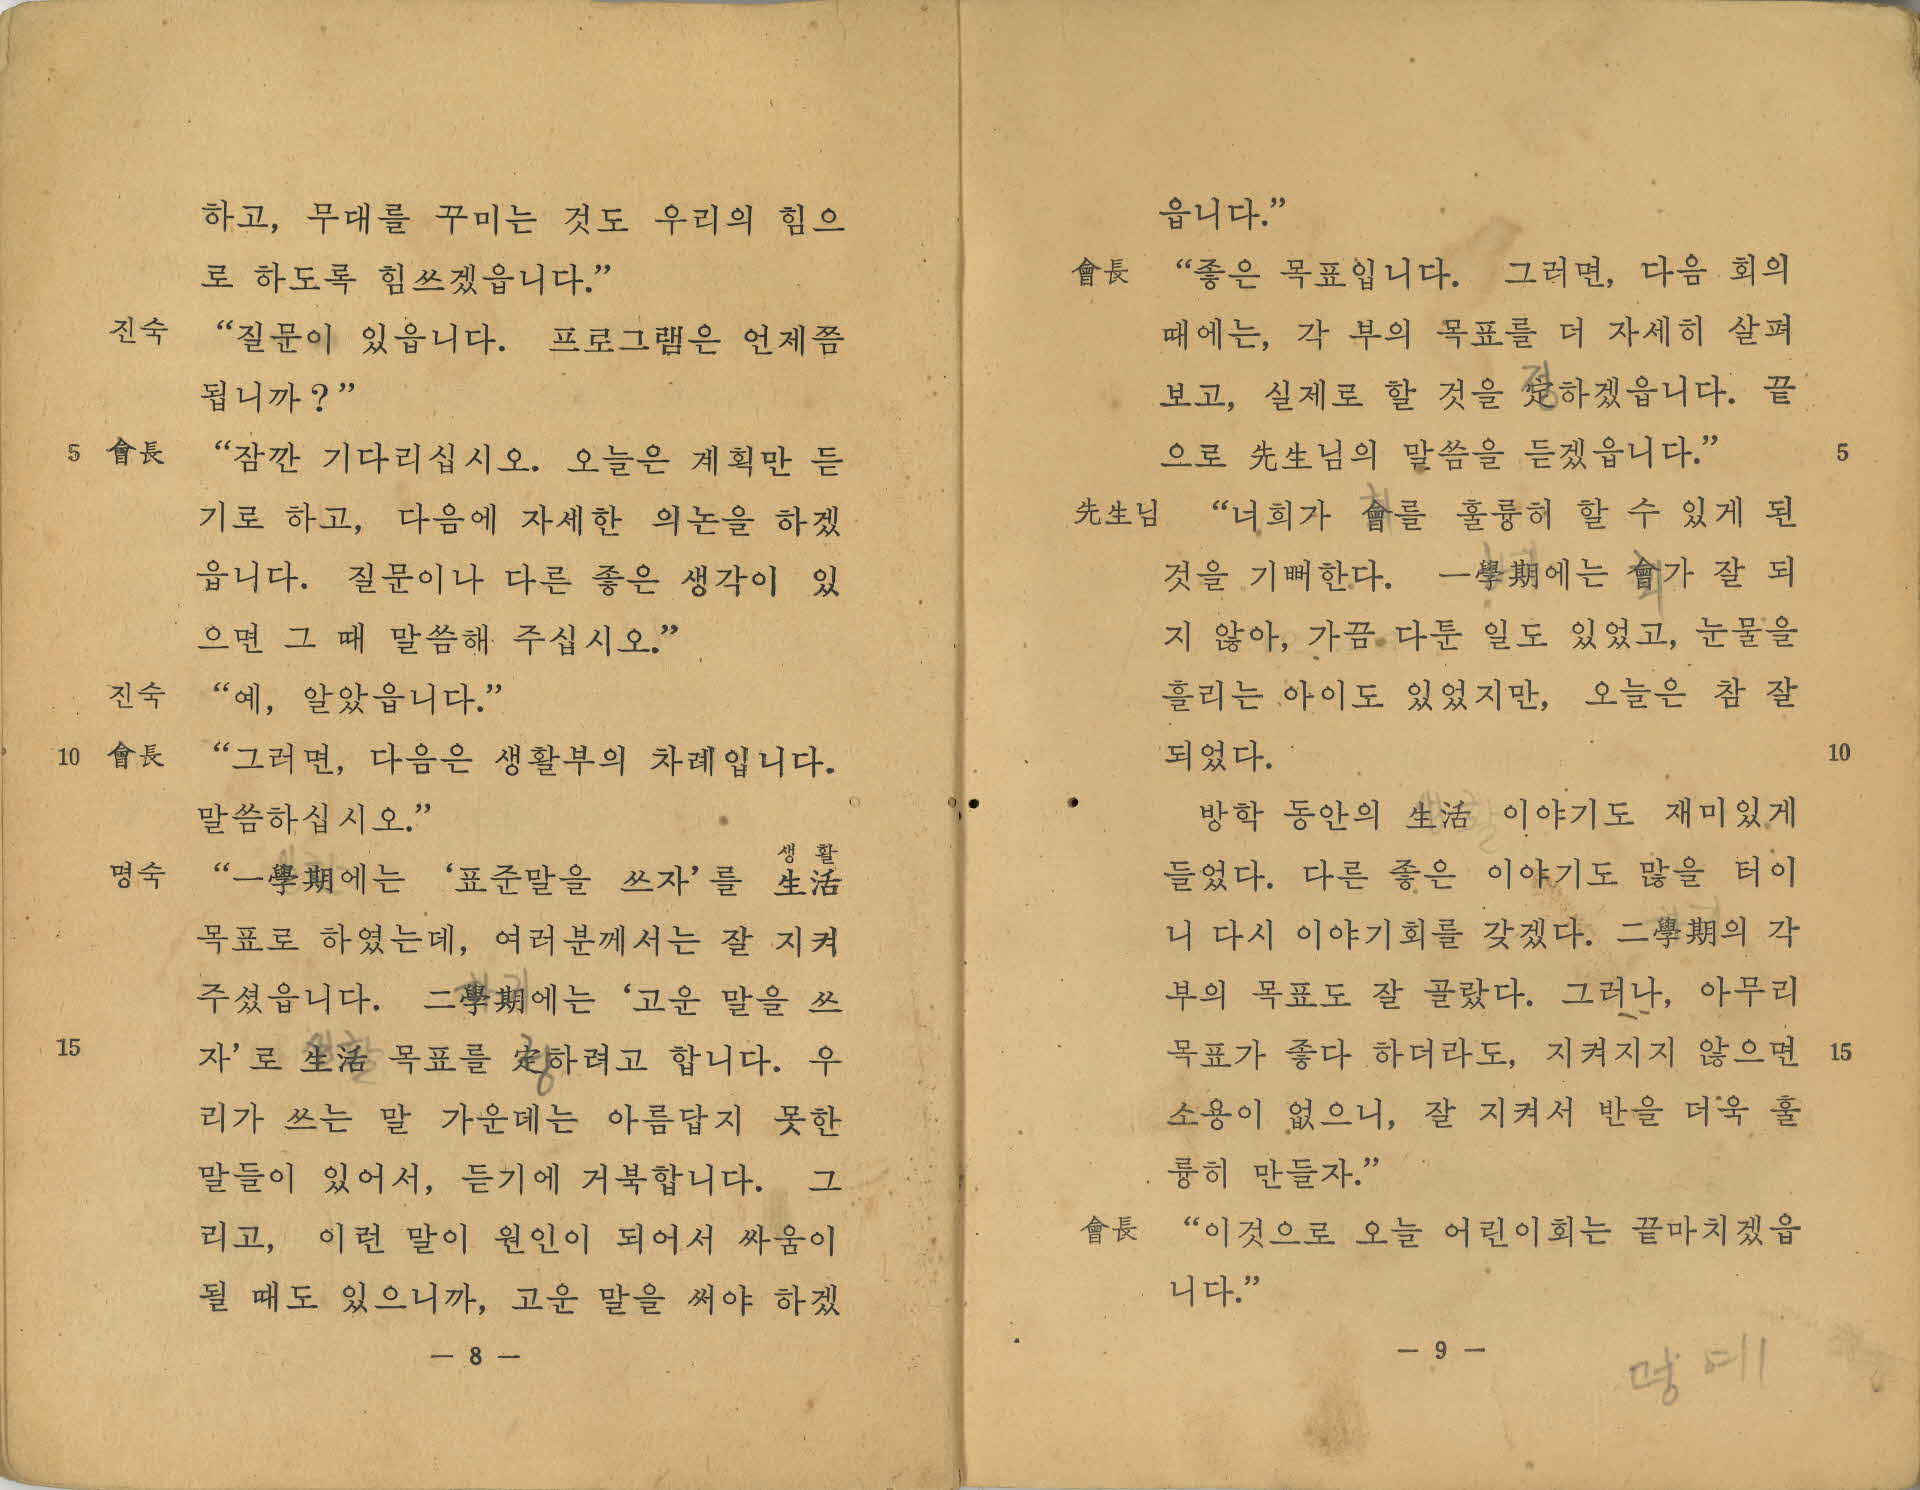 하고, 무대를 꾸미는 것도 우리의 힘으
로 하도록 힘쓰겠읍니다.”
진숙 “질문이 있읍니다. 프로그램은 언제쯤
됩니까?”
5 會長 “잠깐 기다리십시오. 오늘은 계획만 듣
기로 하고, 다음에 자세한 의논을 하겠
읍니다. 질문이나 다른 좋은 생각이 있
으면 그 때 말씀해 주십시오.”
진숙 “예, 알았읍니다.”
10 會長 “그러면, 다음은 생활부의 차례입니다.
말씀하십시오.”
생활
명숙 “一學期에는 ‘표준말을 쓰자’를 生活
목표로 하였는데, 여러분께서는 잘 지켜
주셨읍니다. 二學期에는 ‘고운 말을 쓰
15 자’로 生活 목표를 定하려고 합니다. 우
리가 쓰는 말 가운데는 아름답지 못한
말들이 있어서, 듣기에 거북합니다. 그
리고, 이런 말이 원인이 되어서 싸움이
될 때도 있으니까, 고운 말을 써야 하겠
— 8 —
읍니다.”
會長 “좋은 목표입니다. 그러면, 다음 회의
때에는, 각 부의 목표를 더 자세히 살펴
정
보고, 실제로 할 것을 定하겠읍니다. 끝
으로 先生님의 말씀을 듣겠읍니다.” 5
先生님 “너희가 會를 훌륭히 할 수 있게 된
것을 기뻐한다. 一學期에는 會가 잘 되
지 않아, 가끔 다툰 일도 있었고, 눈물을
흘리는 아이도 있었지만, 오늘은 참 잘
되었다. 10
방학 동안의 生活 이야기도 재미있게
들었다. 다른 좋은 이야기도 많을 터이
니 다시 이야기회를 갖겠다. 二學期의 각
부의 목표도 잘 골랐다. 그러나, 아무리
목표가 좋다 하더라도, 지켜지지 않으면 15
소용이 없으니, 잘 지켜서 반을 더욱 훌
륭히 만들자.”
會長 “이것으로 오늘 어린이회는 끝마치겠읍
니다.”
— 9 —
명예